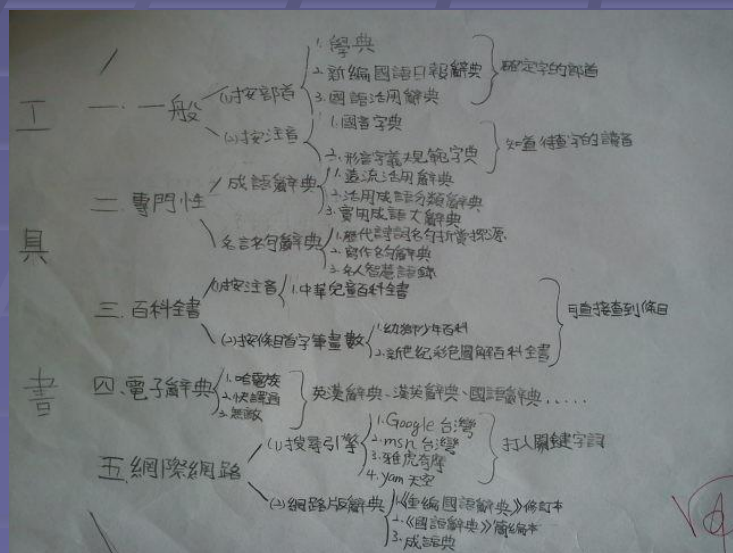 工具書
一.一般
(1)按部首
1.學典
2.新編國語日報辭典
3.國語活用辭典
確定字的部首
(2)按注音
1.國音字典
2.形音字義規範字典
知道待查字的讀音
二.專門性
成語辭典
1.遠流活用辭典
2.活用成語分類辭典
3.實用成語大辭典
名言名句辭典
1.歷代詩詞名句析賞探源
2.寫作名句辭典
3.名人智慧語錄
三.百科全書
(1)按注音
1.中華兒童百科全書
(2)按條目首字筆畫數
1.幼獅少年百科
2.新世紀彩色圖解百科全書
可直接查到條目
四、電子辭典
1.哈電族
2.快譯通
3.無敵
英漢辭典、漢英辭典、國語辭典.....
五網際網路
(1)搜尋引擎
1.Google台灣
2.msn台灣
3.雅虎奇摩
4.yam天空
打入關鍵字詞
(2)網路版辭典
1.《重編國語辭典》修訂本
2.《國語辭典》簡編本
3.成語典